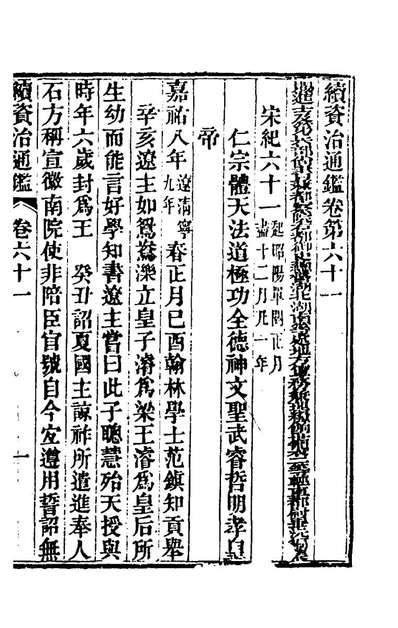 續資治通鑑卷第六十一
宋紀六十一 起昭陽單閼正月盡十二月凡一年
仁宗體天法道極功全德神文聖武睿哲明孝皇
帝
嘉祐八年 遼清寧九年 春正月己酉翰林學士范鎮知貢舉
辛亥遼主如鴛鴦濼立皇子濬為梁王濬為皇后所
生幼而能言好學知書遼主嘗曰此子聰慧殆天授與
時年六歲封為王 癸丑詔夏國主諒祚所遣進奉人
石方稱宣徽南院使非陪臣官號自今宜遵用誓詔無
續資治通鑑 卷六十一 一